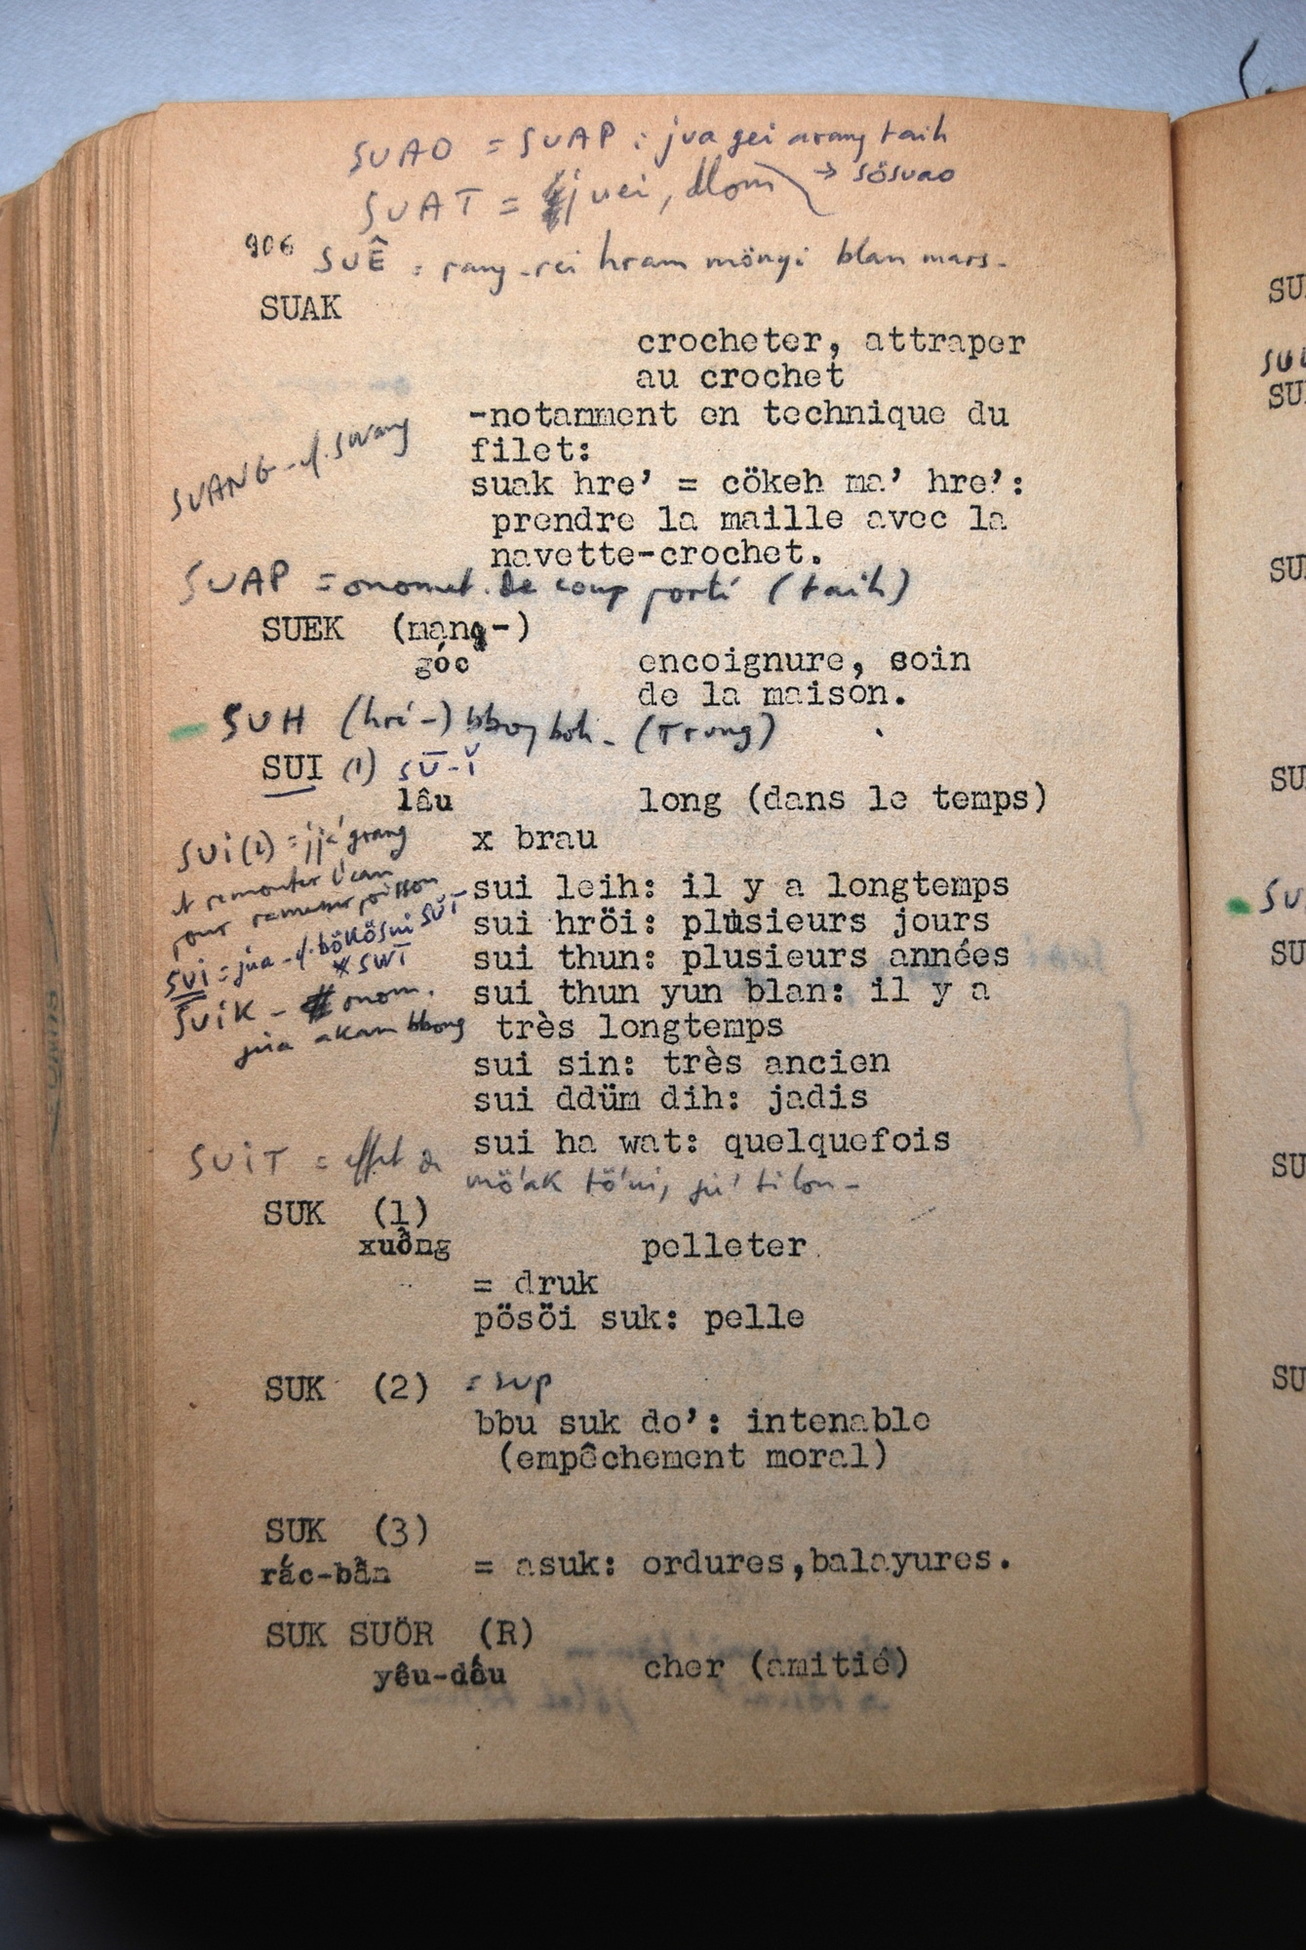 SUAO = SUAP : jua gei arang taih
→ sösuao
SUAT = juei, dlom
906 SUÊ : rang-rei hram möngi blan mars.
SUAK
crocheter, attraper
au crochet
-notamment en technique du
filet:
SUANG - cf. swang
suak hre' = cökeh ma' hre':
prendre la maille avec la
navette-crochet.
SUAP = onomat. de coup porté (taih)
SUEK (mang-)
góc
encoignure, coin
de la maison.
SUH (hré-) bboy boh - (Trung)
SUI (1) sū-ĭ
lâu
long (dans le temps)
x brau
SUI (2) = grang
et remonter l'eau
pour ramasser poisson
sui leih: il y a longtemps
sui hröi: plusieurs jours
SUI = jua - cf. bökösui
* swī
sui thun: plusieurs années
sui thun yun blan: il y a
très longtemps
SUIK - onom.
jua akan bbong
sui sin: très ancien
sui ddüm dih: jadis
sui ha wat: quelquefois
SUIT = effet de mö'ak
SUK (1)
xuồng
pelleter
= druk
pösöi suk: pelle
SUK (2) = sup
bbu suk do': intenable
(empêchement moral)
SUK (3)
rác-bẩn
= asuk: ordures,balayures.
SUK SUÖR (R)
yêu-dấu
cher (amitié)